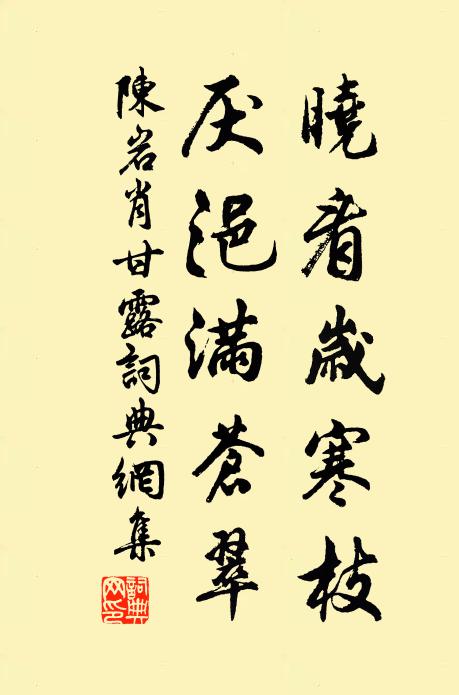 曉看歲寒枝
厌浥满蒼翠
陳岩肖甘露詞典網集
詞典网印